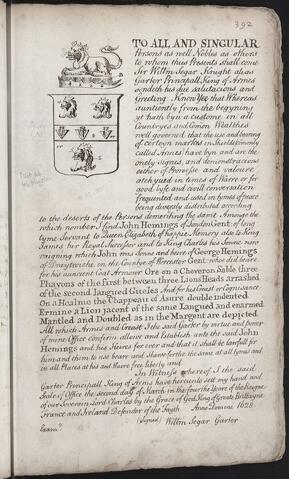 392
TO ALL AND SINGULAR
Persons as well Nobles as others
to whom thus Presents shall come
Sir Willm Segar Knight alias
Garter Principall King of Armes
sendeth his due salutacions and
Greeting Know Yee that Whereas
aunciently from the begynyng
yt hath byn a custome in all
Countryes and Comon Wealthes
well governed that the use and bearing
of certeyn markes in Shields (comonly
called Armes) have byn and are the
onely signes and demonstracions
either of Prowesse and valoure
atchyued in tymes of Warre or for
good lyfe and civill conversation
frequented and used in tymes of peace
being diversly distributed according
to the deserts of the Persons demeriting the same Amongst the
which nomber I find John Hemings of London Gent: of long
tyme Servant to Queen Elizabeth of happie Memory also to King
James hir Royal Successor and to King Charles his Sonne now
raigning which John was Sonne and heire of George Hemings
of Draytwiche in the Countye of Worcester Gent: who did beare
for his auncient Coat Armour Ore on a Cheveron Sable three
Phayons of the first between three Lions Heads arrashed
of the second Langued Gueles And for his Creast or Cognisance
On a Healme the Chappeau of Asure double indented
Ermine a Lion jacent of the same Langued and enarmed
Mantled and Doubled as in the Margent are depicted
All which Armes and Creast I the said Garter by vertue and power
of mine Office confirm allowe and Establish unto the said John
Hemings and his Heires for ever and that it shall be lawfull for
him and them to use beare and shewe forthe the same at all tymes and
in all Places at his and theire free liberty and
In Witness whereof I the said
Garter Principall King of Arms have hereunto sett my hand and
Seale of Office the second day of March in the fourthe Yeare of the Raigne
of our Soverain Lord Charles by the Grace of God King of Greate Brittayne
France and Ireland Defender of the Fayth Anno Domini 1628
Examd (Signed) Willm Segar Garter